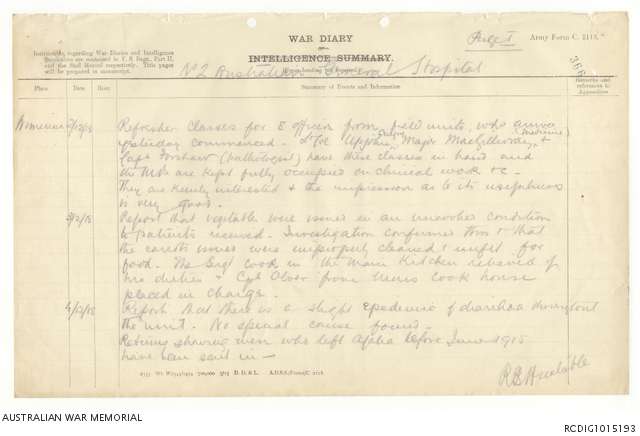 WAR DIARY
or
INTELLIGENCE SUMMARY.
Page I
Army Form C. 2118.
Instructions regarding War Diaries and Intelligence
Summaries are contained in F. S. Regs., Part II.
and the Staff Manual respectively. Title pages
will be prepared in manuscript.
No 2 Australian General Hospital
(Erase heading not required.)
Place
Date
Hour
Summary of Events and Information
Remarks and
references to
Appendices
Wimereux
Refresher classes for 8 officers from field units, who
yesterday commenced. Lt Col Upjohn Major &
(medicine)
Capt (pathologist) have these classes in hand and
the are kept fully occupied on clinical work &c.
They are keenly interested & the impression as to its usefulness
is very good.
3/12/16
Report that vegetables were issued in an uncooked condition
to patients received. Investigation confirmed this & that
the carrots issued were improperly cleaned & unfit for
food. The Sergt Cook in the Main Kitchen relieved of
his duties & Cpl from Cook house
placed in charge.
4/12/16
Report that there is a slight Epidemic of diarrhoea throughout
the unit. No special cause found.
Returns showing men who left Aftralia before June 1915
have been sent in —